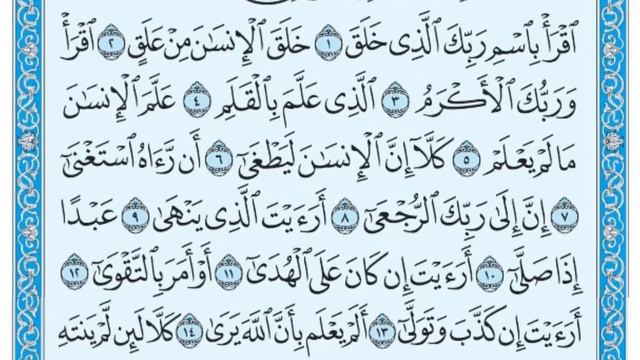 ٱقْرَأْ بِٱسْمِ رَبِّكَ ٱلَّذِى خَلَقَ ١ خَلَقَ ٱلْإِنسَٰنَ مِنْ عَلَقٍ ٢ ٱقْرَأْ
وَرَبُّكَ ٱلْأَكْرَمُ ٣ ٱلَّذِى عَلَّمَ بِٱلْقَلَمِ ٤ عَلَّمَ ٱلْإِنسَٰنَ
مَا لَمْ يَعْلَمْ ٥ كَلَّآ إِنَّ ٱلْإِنسَٰنَ لَيَطْغَىٰٓ ٦ أَن رَّءَاهُ ٱسْتَغْنَىٰٓ
٧ إِنَّ إِلَىٰ رَبِّكَ ٱلرُّجْعَىٰٓ ٨ أَرَءَيْتَ ٱلَّذِى يَنْهَىٰ ٩ عَبْدًا
إِذَا صَلَّىٰٓ ١٠ أَرَءَيْتَ إِن كَانَ عَلَى ٱلْهُدَىٰٓ ١١ أَوْ أَمَرَ بِٱلتَّقْوَىٰٓ ١٢
أَرَءَيْتَ إِن كَذَّبَ وَتَوَلَّىٰٓ ١٣ أَلَمْ يَعْلَم بِأَنَّ ٱللَّهَ يَرَىٰ ١٤ كَلَّا لَئِن لَّمْ يَنتَهِ